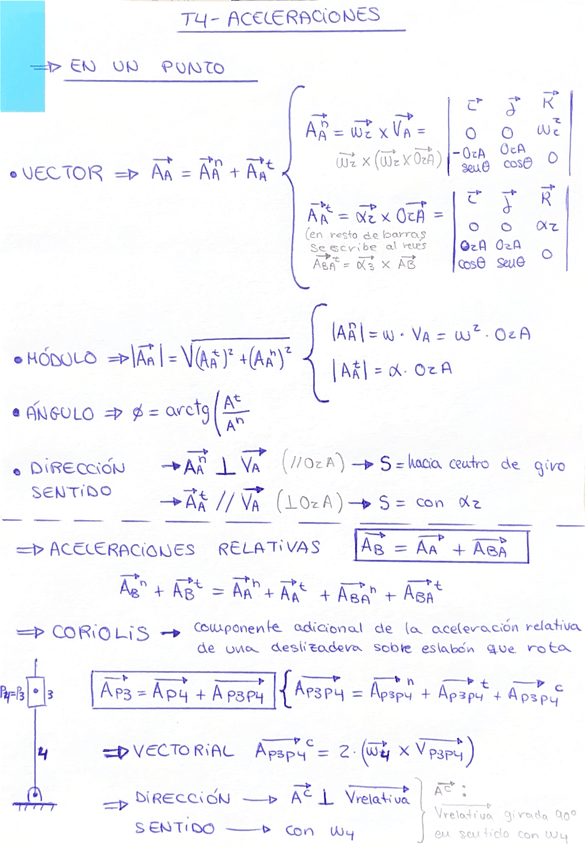 T4-ACELERACIONES
⇒ EN UN PUNTO
• VECTOR ⇒ A⃗_A = A⃗_A^n + A⃗_A^t
A⃗_A^n = ω⃗2 x V⃗_A = | i⃗ j⃗ K⃗ |
| 0 0 ω⃗2 |
ω⃗2 x (ω⃗2 x O2A⃗) | -O2A senθ O2A cosθ 0 |
A⃗_A^t = α⃗2 x O2A⃗ = | i⃗ j⃗ K⃗ |
(en resto de barras | 0 0 α2 |
se escribe al reves | O2A cosθ O2A senθ 0 |
A⃗_BA^t = α⃗3 x AB⃗
• MÓDULO ⇒ |A⃗_A| = √(A_A^t)² + (A_A^n)²
|A_A^n| = ω · V_A = ω² · O2A
|A_A^t| = α · O2A
• ÁNGULO ⇒ ø = arctg(A^t/A^n
• DIRECCIÓN → A⃗_A^n ⊥ V⃗_A (//O2A) → S = hacia centro de giro
SENTIDO → A⃗_A^t // V⃗_A (⊥O2A) → S = con α2
⇒ ACELERACIONES RELATIVAS A⃗_B = A⃗_A + A⃗_BA
A⃗_B^n + A⃗_B^t = A⃗_A^n + A⃗_A^t + A⃗_BA^n + A⃗_BA^t
⇒ CORIOLIS → componente adicional de la aceleración relativa
de una deslizadera sobre eslabón que rota
P4=P3 3
4
A⃗_P3 = A⃗_P4 + A⃗_P3P4 { A⃗_P3P4 = A⃗_P3P4^n + A⃗_P3P4^t + A⃗_P3P4^c
⇒ VECTORIAL A⃗_P3P4^c = 2·(ω⃗4 x V⃗_P3P4)
⇒ DIRECCIÓN → A⃗^c ⊥ Vrelativa
SENTIDO → con ω4
A⃗^c :
Vrelativa girada 90º
en sentido con ω4